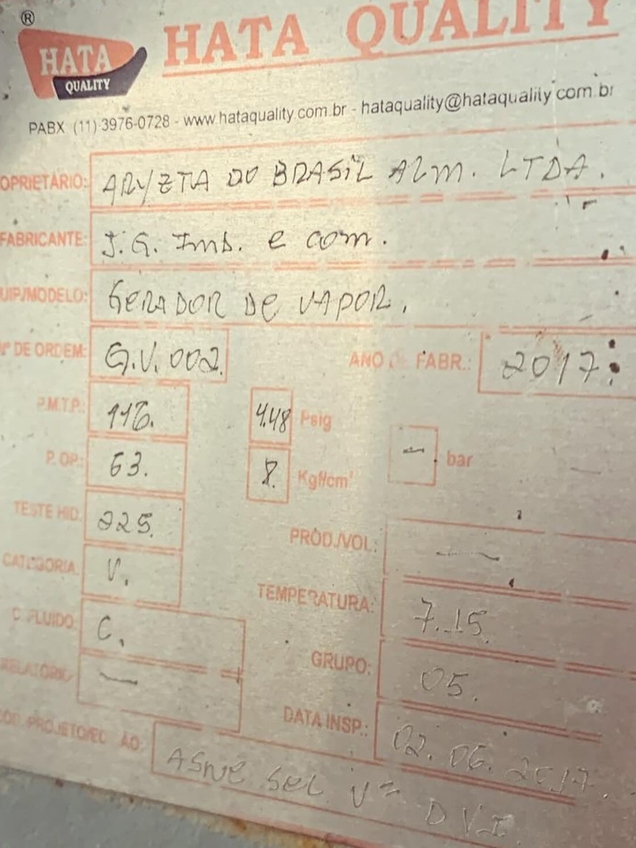 ®
HATA
QUALITY
HATA QUALITY
PABX (11) 3976-0728 - www.hataquality.com.br - hataquality@hataquality.com.br
OPRIETÁRIO: ARYZTA DO BRASIL ALM. LTDA.
FABRICANTE: J.G. Imb. e com.
UIP/MODELO: GERADOR DE VAPOR.
Nº DE ORDEM: G.V. 002. ANO DE FABR.: 2017
P.M.T.P.: 116. 4.48 Psig
P. OP: 63. 8. Kgf/cm² — bar
TESTE HID. 225. PROD./VOL: —
CATEGORIA V. TEMPERATURA: 7.15
C. FLUIDO: C. GRUPO: 05.
RELATÓRIO — DATA INSP.: 02.06.2017.
AO: ASME SEC V